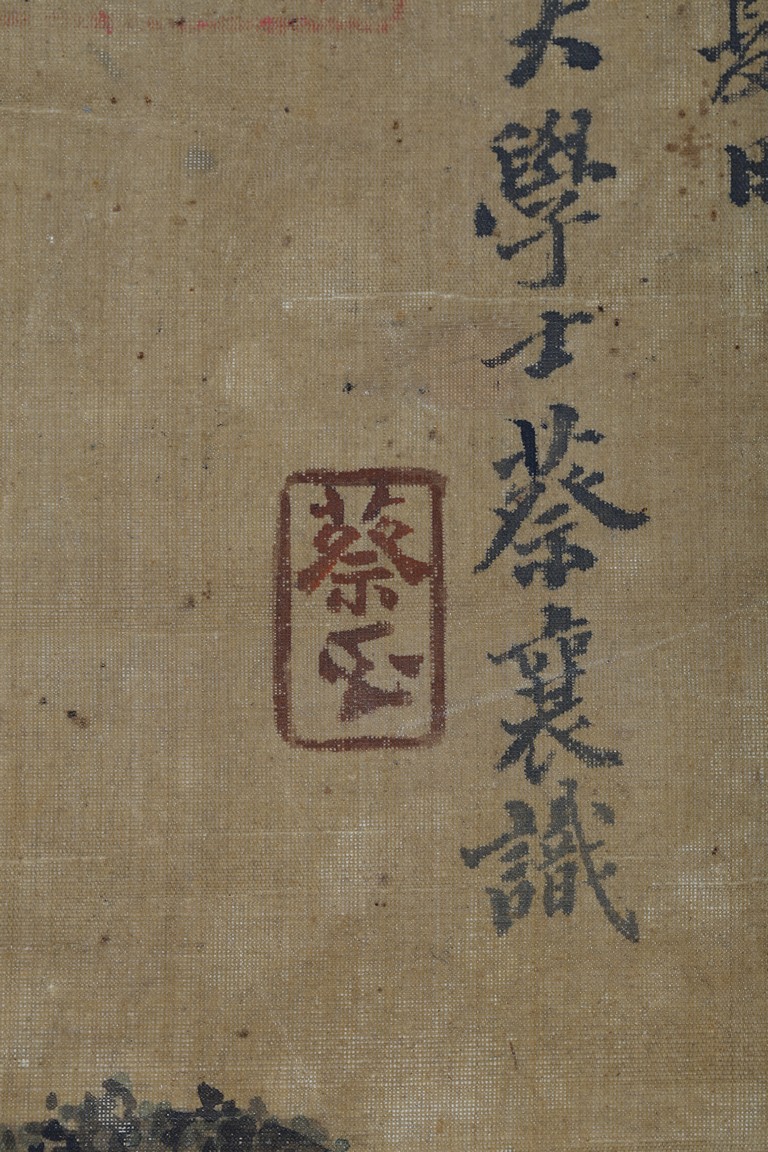 大學士蔡襄識
蔡